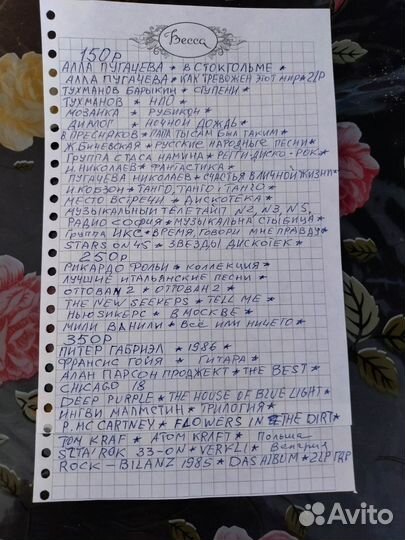 Весса
150р
АЛЛА ПУГАЧЕВА * В СТОКГОЛЬМЕ *
АЛЛА ПУГАЧЕВА * КАК ТРЕВОЖЕН ЭТОТ МИР * 2LP
ТУХМАНОВ БАРЫКИН * СТУПЕНИ *
ТУХМАНОВ * НЛО *
МОЗАИКА * РУБИКОН *
ДИАЛОГ * НОЧНОЙ ДОЖДЬ *
В. ПРЕСНЯКОВ * ПАПА ТЫ САМ БЫЛ ТАКИМ *
Ж. БИЧЕВСКАЯ * РУССКИЕ НАРОДНЫЕ ПЕСНИ *
ГРУППА СТАСА НАМИНА * РЕГГИ-ДИСКО-РОК *
И. НИКОЛАЕВ * ФАНТАСТИКА *
ПУГАЧЕВА НИКОЛАЕВ * СЧАСТЬЯ В ЛИЧНОЙ ЖИЗНИ *
И. КОБЗОН * ТАНГО, ТАНГО, ТАНГО *
МЕСТО ВСТРЕЧИ * ДИСКОТЕКА *
МУЗЫКАЛЬНЫЙ ТЕЛЕТАЙП N2, N3, N5,
РАДИО СОФИЯ * МУЗЫКАЛЬНА СТЫЛБИЦА *
ГРУППА ИКС * ВРЕМЯ, ГОВОРИ МНЕ ПРАВДУ *
STARS ON 45 * ЗВЕЗДЫ ДИСКОТЕК *
250р
РИКАРДО ФОЛЬИ * КОЛЛЕКЦИЯ *
ЛУЧШИЕ ИТАЛЬЯНСКИЕ ПЕСНИ *
ОТТОВАН 2 * ОТТОВАН 2 *
THE NEW SEEKERS * TELL ME *
НЬЮЗИКЕРС * В МОСКВЕ *
МИЛИ ВАНИЛИ * ВСЕ ИЛИ НИЧЕГО *
350р
ПИТЕР ГАБРИЭЛ * 1986 *
ФРАНСИС ГОЙЯ * ГИТАРА *
АЛАН ПАРСОН ПРОДЖЕКТ * THE BEST *
CHICAGO 18
DEEP PURPLE * THE HOUSE OF BLUE LIGHT *
ИНГВИ МАЛМСТИН * ТРИЛОГИЯ *
P. MC CARTNEY * FLOWERS IN THE DIRT *
TOM KRAF * ATOM KRAFT * Польша
* VERKLI * Венгрия
ROCK-BILANZ 1985 * DAS ALBUM * 2LP ГДР
Avito